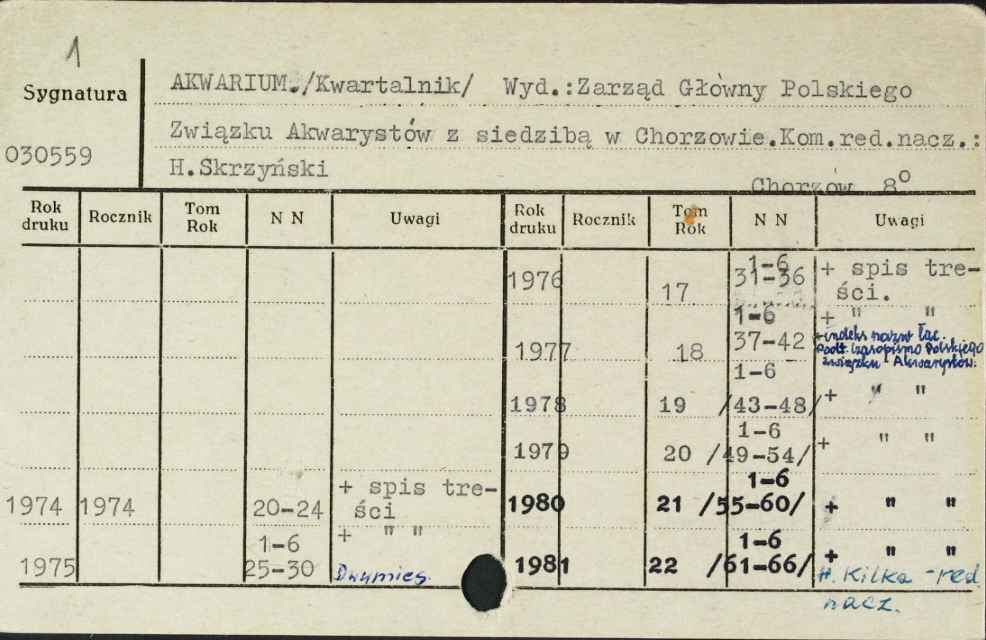 1
Sygnatura
030559
AKWARIUM./Kwartalnik/ Wyd.:Zarząd Główny Polskiego
Związku Akwarystów z siedzibą w Chorzowie.Kom.red.nacz.:
H.Skrzyński
Chorzów 8º
Rok druku Rocznik Tom Rok N N Uwagi Rok druku Rocznik Tom Rok N N Uwagi
1974 1974 20-24 + spis tre-
ści
1975 1-6 + " "
25-30 Dwumies.
1976 17 1-6 + spis tre-
31-36 ści.
1977 18 1-6 + " "
37-42 +indeks nazw łac.
podt. Czasopismo Polskiego
Związku Akwarystów.
1978 19 1-6
/43-48/ + " "
1979 20 1-6
/49-54/ + " "
1980 21 1-6
/55-60/ + " "
1981 22 1-6
/61-66/ + " "
H. Kilka - red.
nacz.